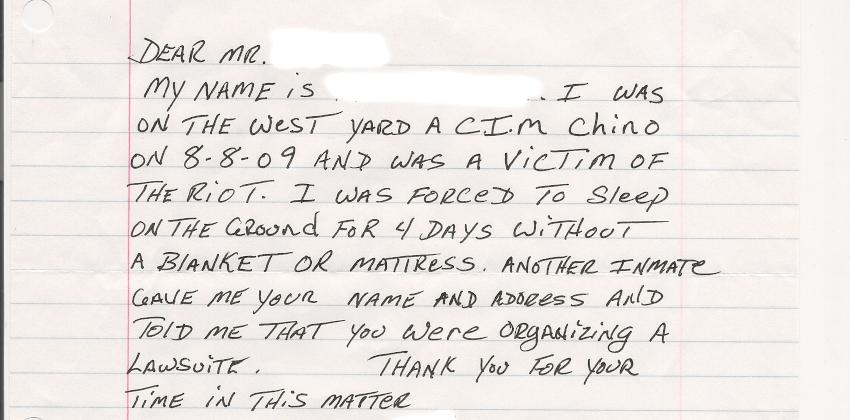 DEAR MR.
MY NAME iS . I WAS
ON THE WEST YARD A C.I.M Chino
ON 8-8-09 AND WAS A VICTIM OF
THE RIOT. I WAS FORCED TO Sleep
ON THE GRound FOR 4 DAYS WITHOUT
A BLANKET OR MATTRESS. ANOTHER INMATE
GAVE ME YOUR NAME AND ADDRESS AND
TOLD ME THAT YOU WERE ORGANIZING A
LAWSUITE. THANK YOU FOR YOUR
TIME IN THIS MATTER